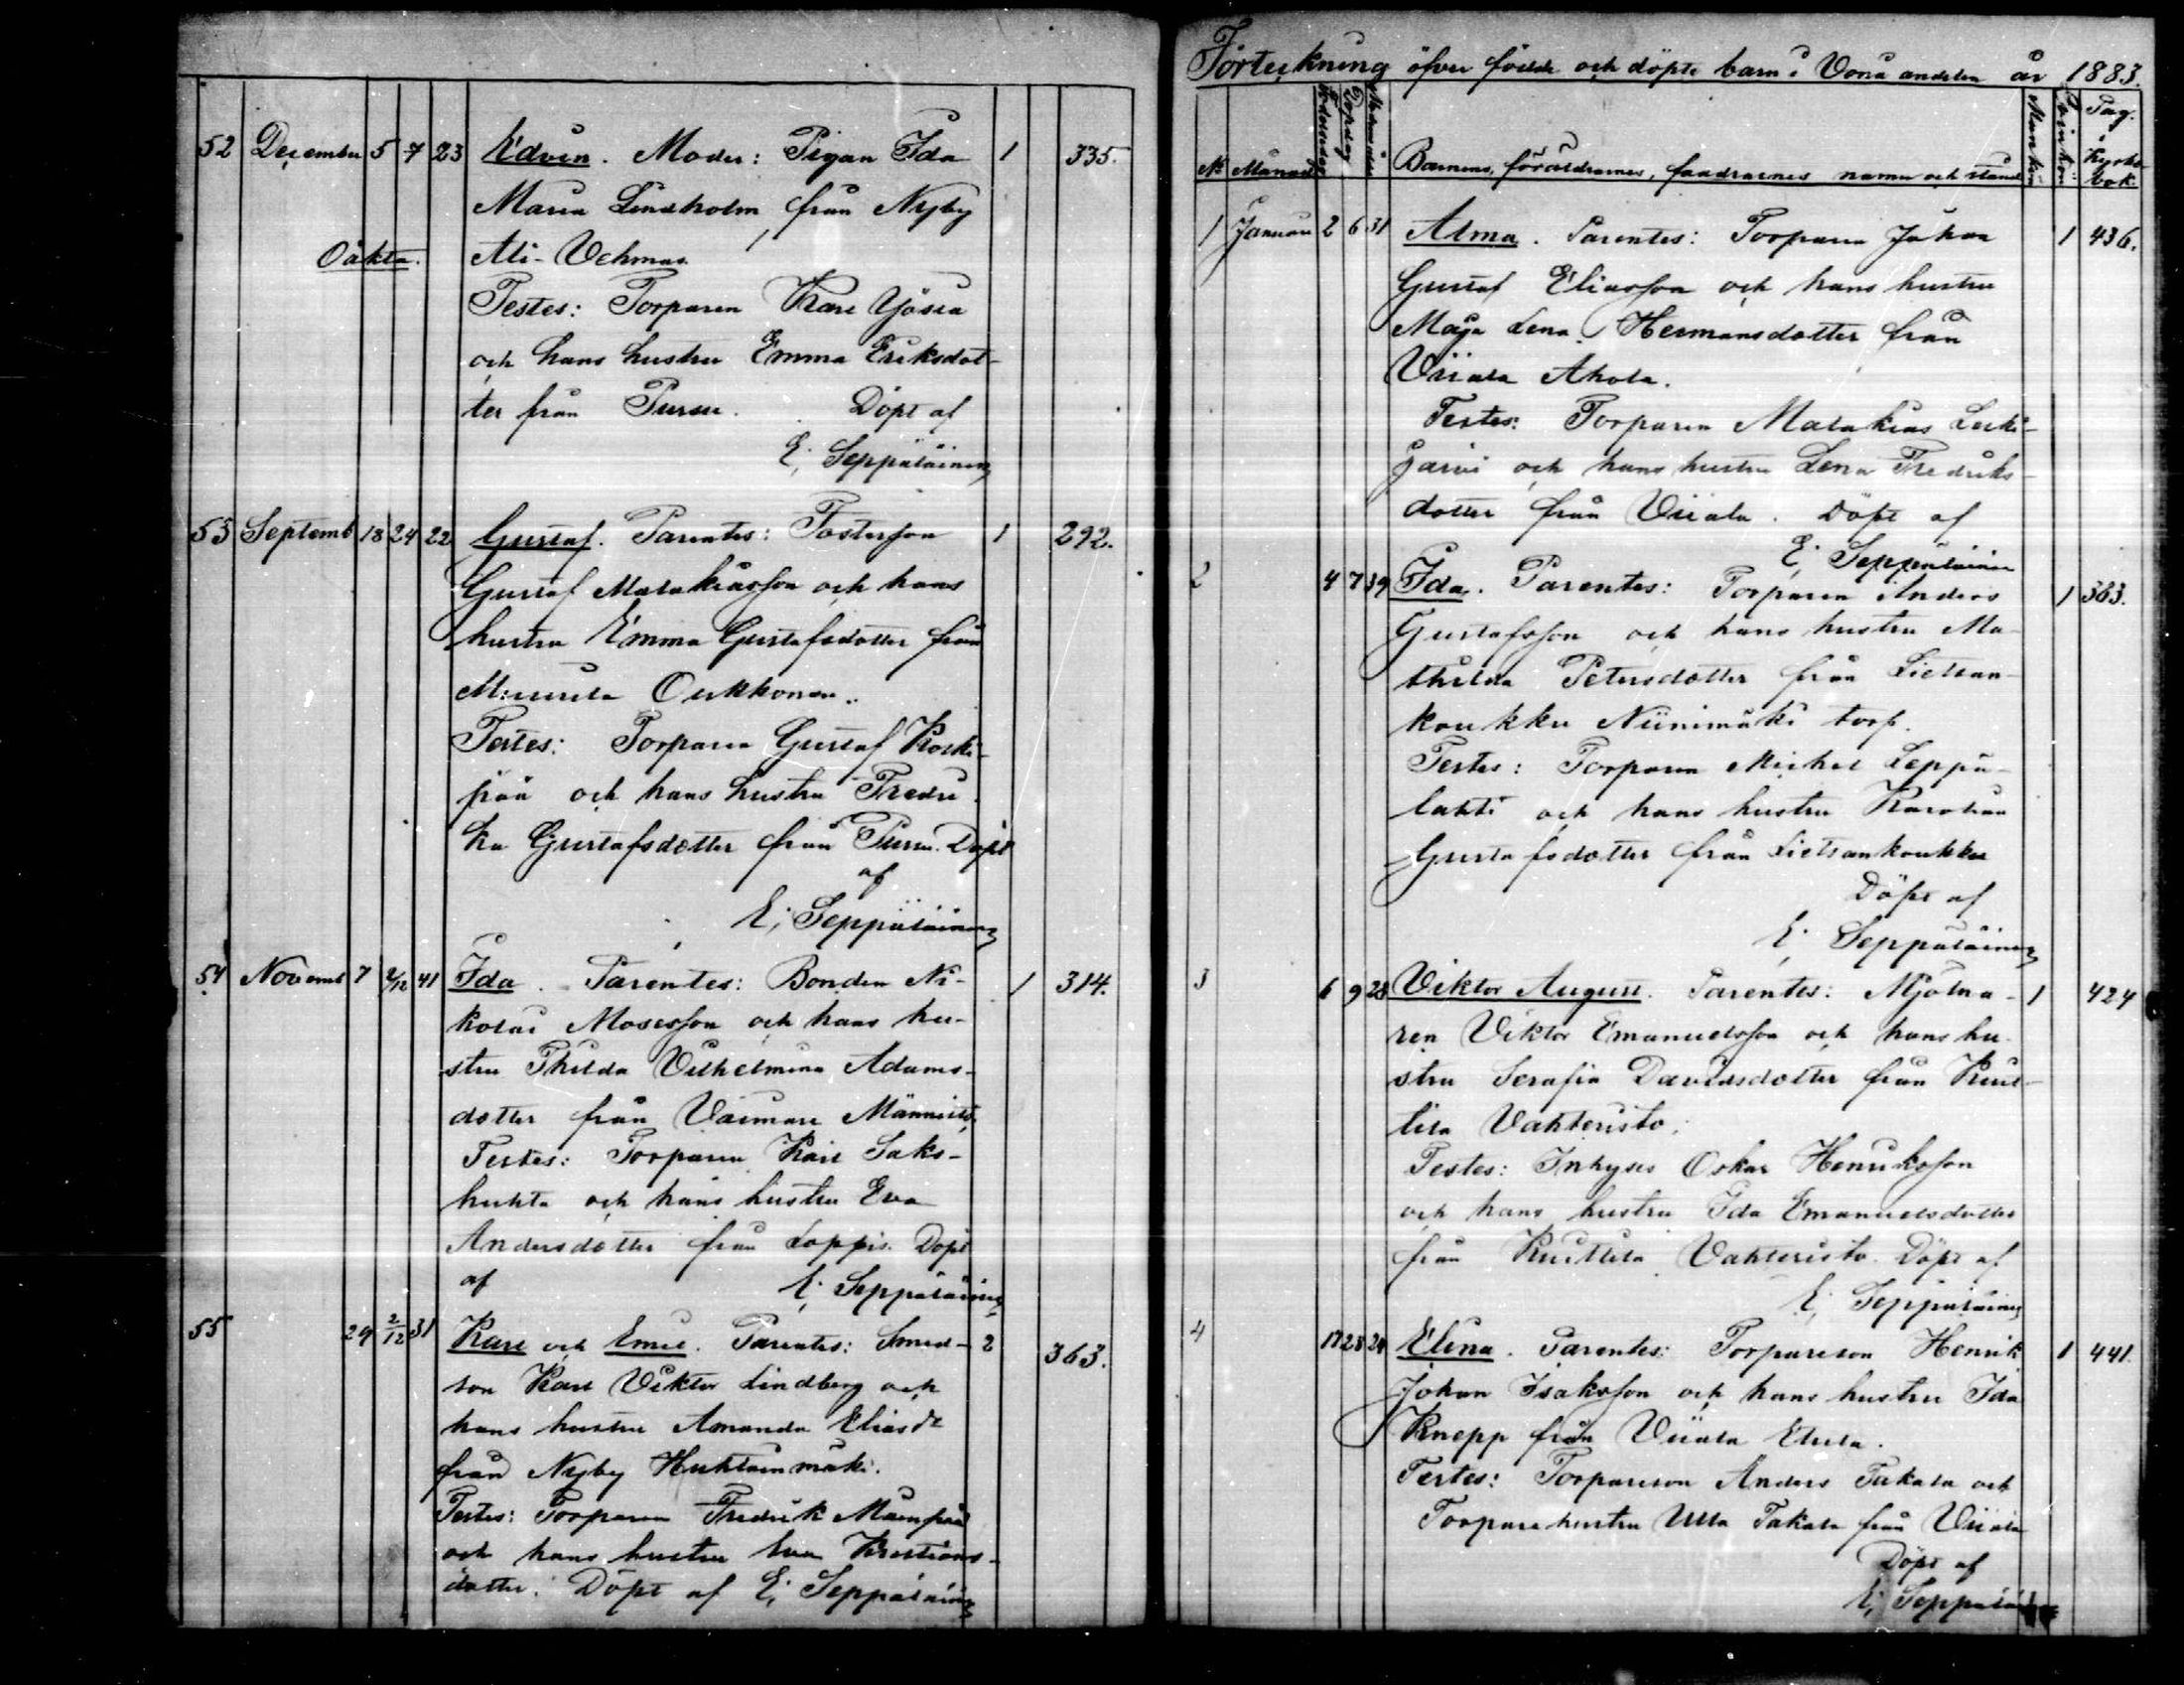 52 December 5 7 23 Edvin. Moder: Pigan Ida 1 335.
Maria Lindholm från Nyby
Oäkta. Ali-Vehmas
Testes: Torparen Karl Yösia
och hans hustru Emma Eriksdot-
ter från Pursu. Döpt af
E. Seppäläinen
53 Septemb 18 24 22 Gustaf. Parentes: Fosterson
Gustaf Malakiasson och hans 1 292.
hustru Emma Gustafsdotter från
Oukkonen.
Testes: Torparen Gustaf Koski-
pää och hans hustru Fredri
ka Gustafsdotter från Pursu. Döpt
af
E. Seppäläinen
54 Novemb 7 2/12 41 Ida. Parentes: Bonden Ni- 1 314.
kolai Mosesson och hans hu-
stru Thilda Vilhelmina Adams-
dotter från Männistö
Testes: Torparen Karl Saks-
huhta och hans hustru Eva
Andersdotter från Loppis. Döpt
af E. Seppäläinen
55 24 2/12 31 Karl och Emil. Parentes: Smed- 2 363.
son Karl Viktor Lindberg och
hans hustru Amanda Eliasdr
från Nyby Huhtainmäki.
Testes: Torparen Fredrik Maenpää
och hans hustru Eva Kristians-
dotter. Döpt af E. Seppäläinen
Förteckning öfver födde och döpte barn i Vona andelen år 1883.
No Månad Födelsedag Döpdag Moderns ålder Barnens, föräldrarnes, faddrarnes namn och stånd Mankön Qvinkön Pag. i Kyrko-
bok.
1 Januari 2 6 31 Alma. Parentes: Torparen Johan 1 436.
Gustaf Eliasson och hans hustru
Maja Lena Hermansdotter från
Viiala Ahola.
Testes: Torparen Malakias Leski-
järvi och hans hustru Lena Fredriks-
dotter från Viiala. Döpt af
E. Seppäläinen
2 4 7 39 Ida. Parentes: Torparen Anders 1 363.
Gustafsson och hans hustru Ma-
thilda Petersdotter från Lietsan-
koukku Niinimäki torp.
Testes: Torparen Mickel Leppä-
lahti och hans hustru Karolina
Gustafsdotter från Lietsankoukku
Döpt af
E. Seppäläinen
3 6 9 28 Viktor August. Parentes: Mjölna- 1 424
ren Viktor Emanuelsson och hans hu-
stru Serafia Davidsdotter från Kuut-
tila Vahteristo.
Testes: Inhyses Oskar Henriksson
och hans hustru Ida Emanuelsdotter
från Kuuttila Vahteristo. Döpt af
E. Seppäläinen
4 17 28 24 Elina. Parentes: Torpareson Henrik 1 441.
Johan Isaksson och hans hustru Ida
Knepp från Viiala Etula.
Testes: Torpareson Anders Takala och
Torparehustru Ulla Takala från Viiala
Döpt af
E. Seppäläinen